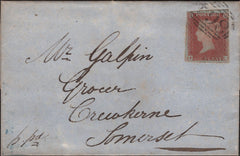 Mr Galpin
Grocer
Crewkerne
Somerset